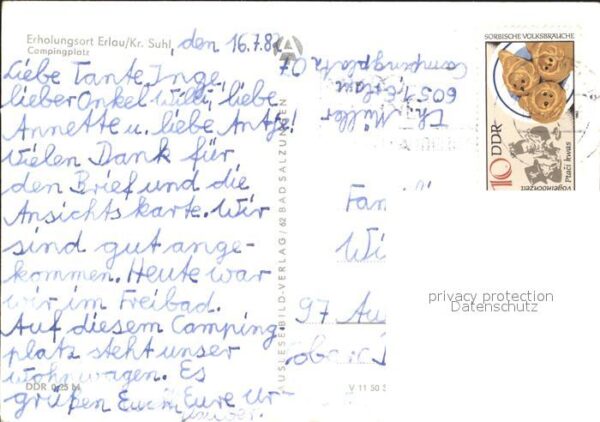 Erholungsort Erlau/Kr. Suhl
Campingplatz
, den 16.7.82
Liebe Tante Inge,
lieber Onkel Willi, liebe
Annette u. liebe Antje!
Vielen Dank für
den Brief und die
Ansichtskarte. Wir
sind gut ange-
kommen. Heute war
wir im Freibad.
Auf diesem Camping
platz steht unser
Wohnwagen. Es
grüßen Euch Eure Ur-
DDR 0,25 M
AUSLESE-BILD-VERLAG / 62 BAD SALZUNGEN
V 11 50
Th. Müller
6051 Erlau
Campingplatz
07
Fam
Wi
97 Au
SORBISCHE VOLKSBRÄUCHE
10 DDR
Vogelhochzeit
Ptači kwas
privacy protection
Datenschutz